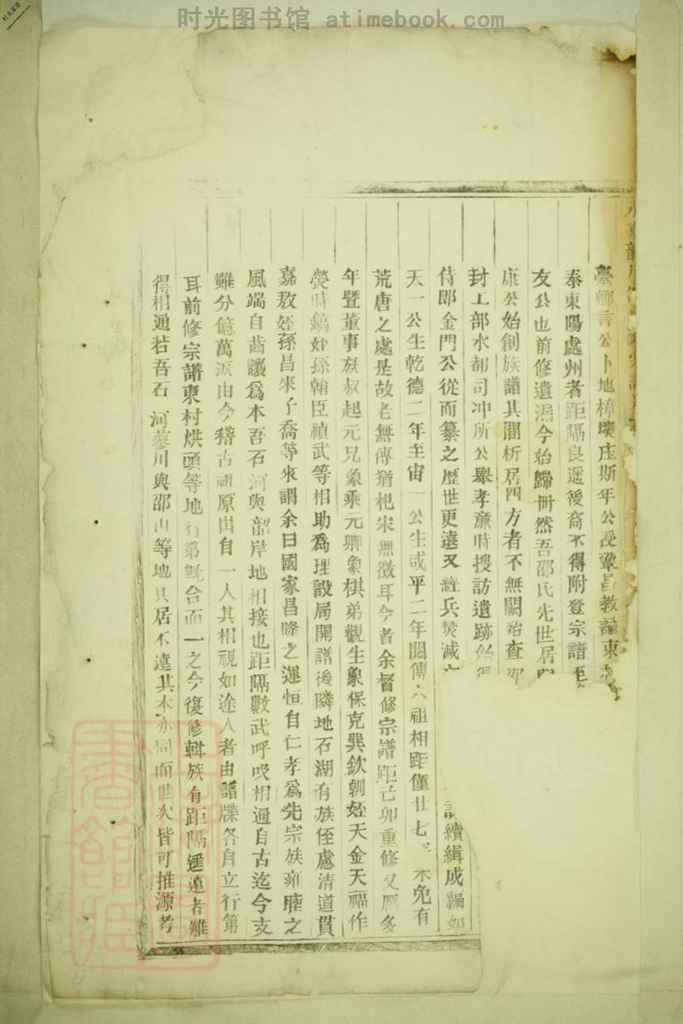 时光图书馆 atimebook.com
公卜地樟墺庄斯年公授鞏昌教諭東
泰東陽處州者距隔良遥後裔不得附登宗譜至
友公也前修遺漏今始歸冊然吾邵氏先世居
康公始創族譜其間析居四方者不無闕殆查
封工部水都司冲所公舉孝廉時搜訪遺跡
侍郎金門公從而纂之歷世更遠又 兵焚減
續緝成編
天一公生乾德二年至宙一公生咸平二年閱傳六祖相距僅廿七 不免有
荒唐之處是故老無傳猶杞宋無徵耳今者余督修宗譜距己卯重修又歷多
年暨董事族叔起元兄象乘元卿象棋弟觀生象保克巽欽朝姪天金天福作
榮時鎬姪孫翰臣禎武等相助爲理設局開譜後隣地石湖有族侄處清道貫
嘉敖姪孫昌來子喬等來謂余曰國家昌隆之運恒自仁孝爲先宗族雍睦之
風端自 讓爲本吾石河與韶岸地相接也距隔數武呼吸相通自古迄今支
難分億萬派由今稽古祖原出自一人其相視如途人者由譜牒各自立行第
耳前修宗譜東村烘頭等地 合而一之今復修輯族有距隔遥遠者難
得相通若吾石河 川與邵山等地其居不遠其本亦同而世次皆可推源考